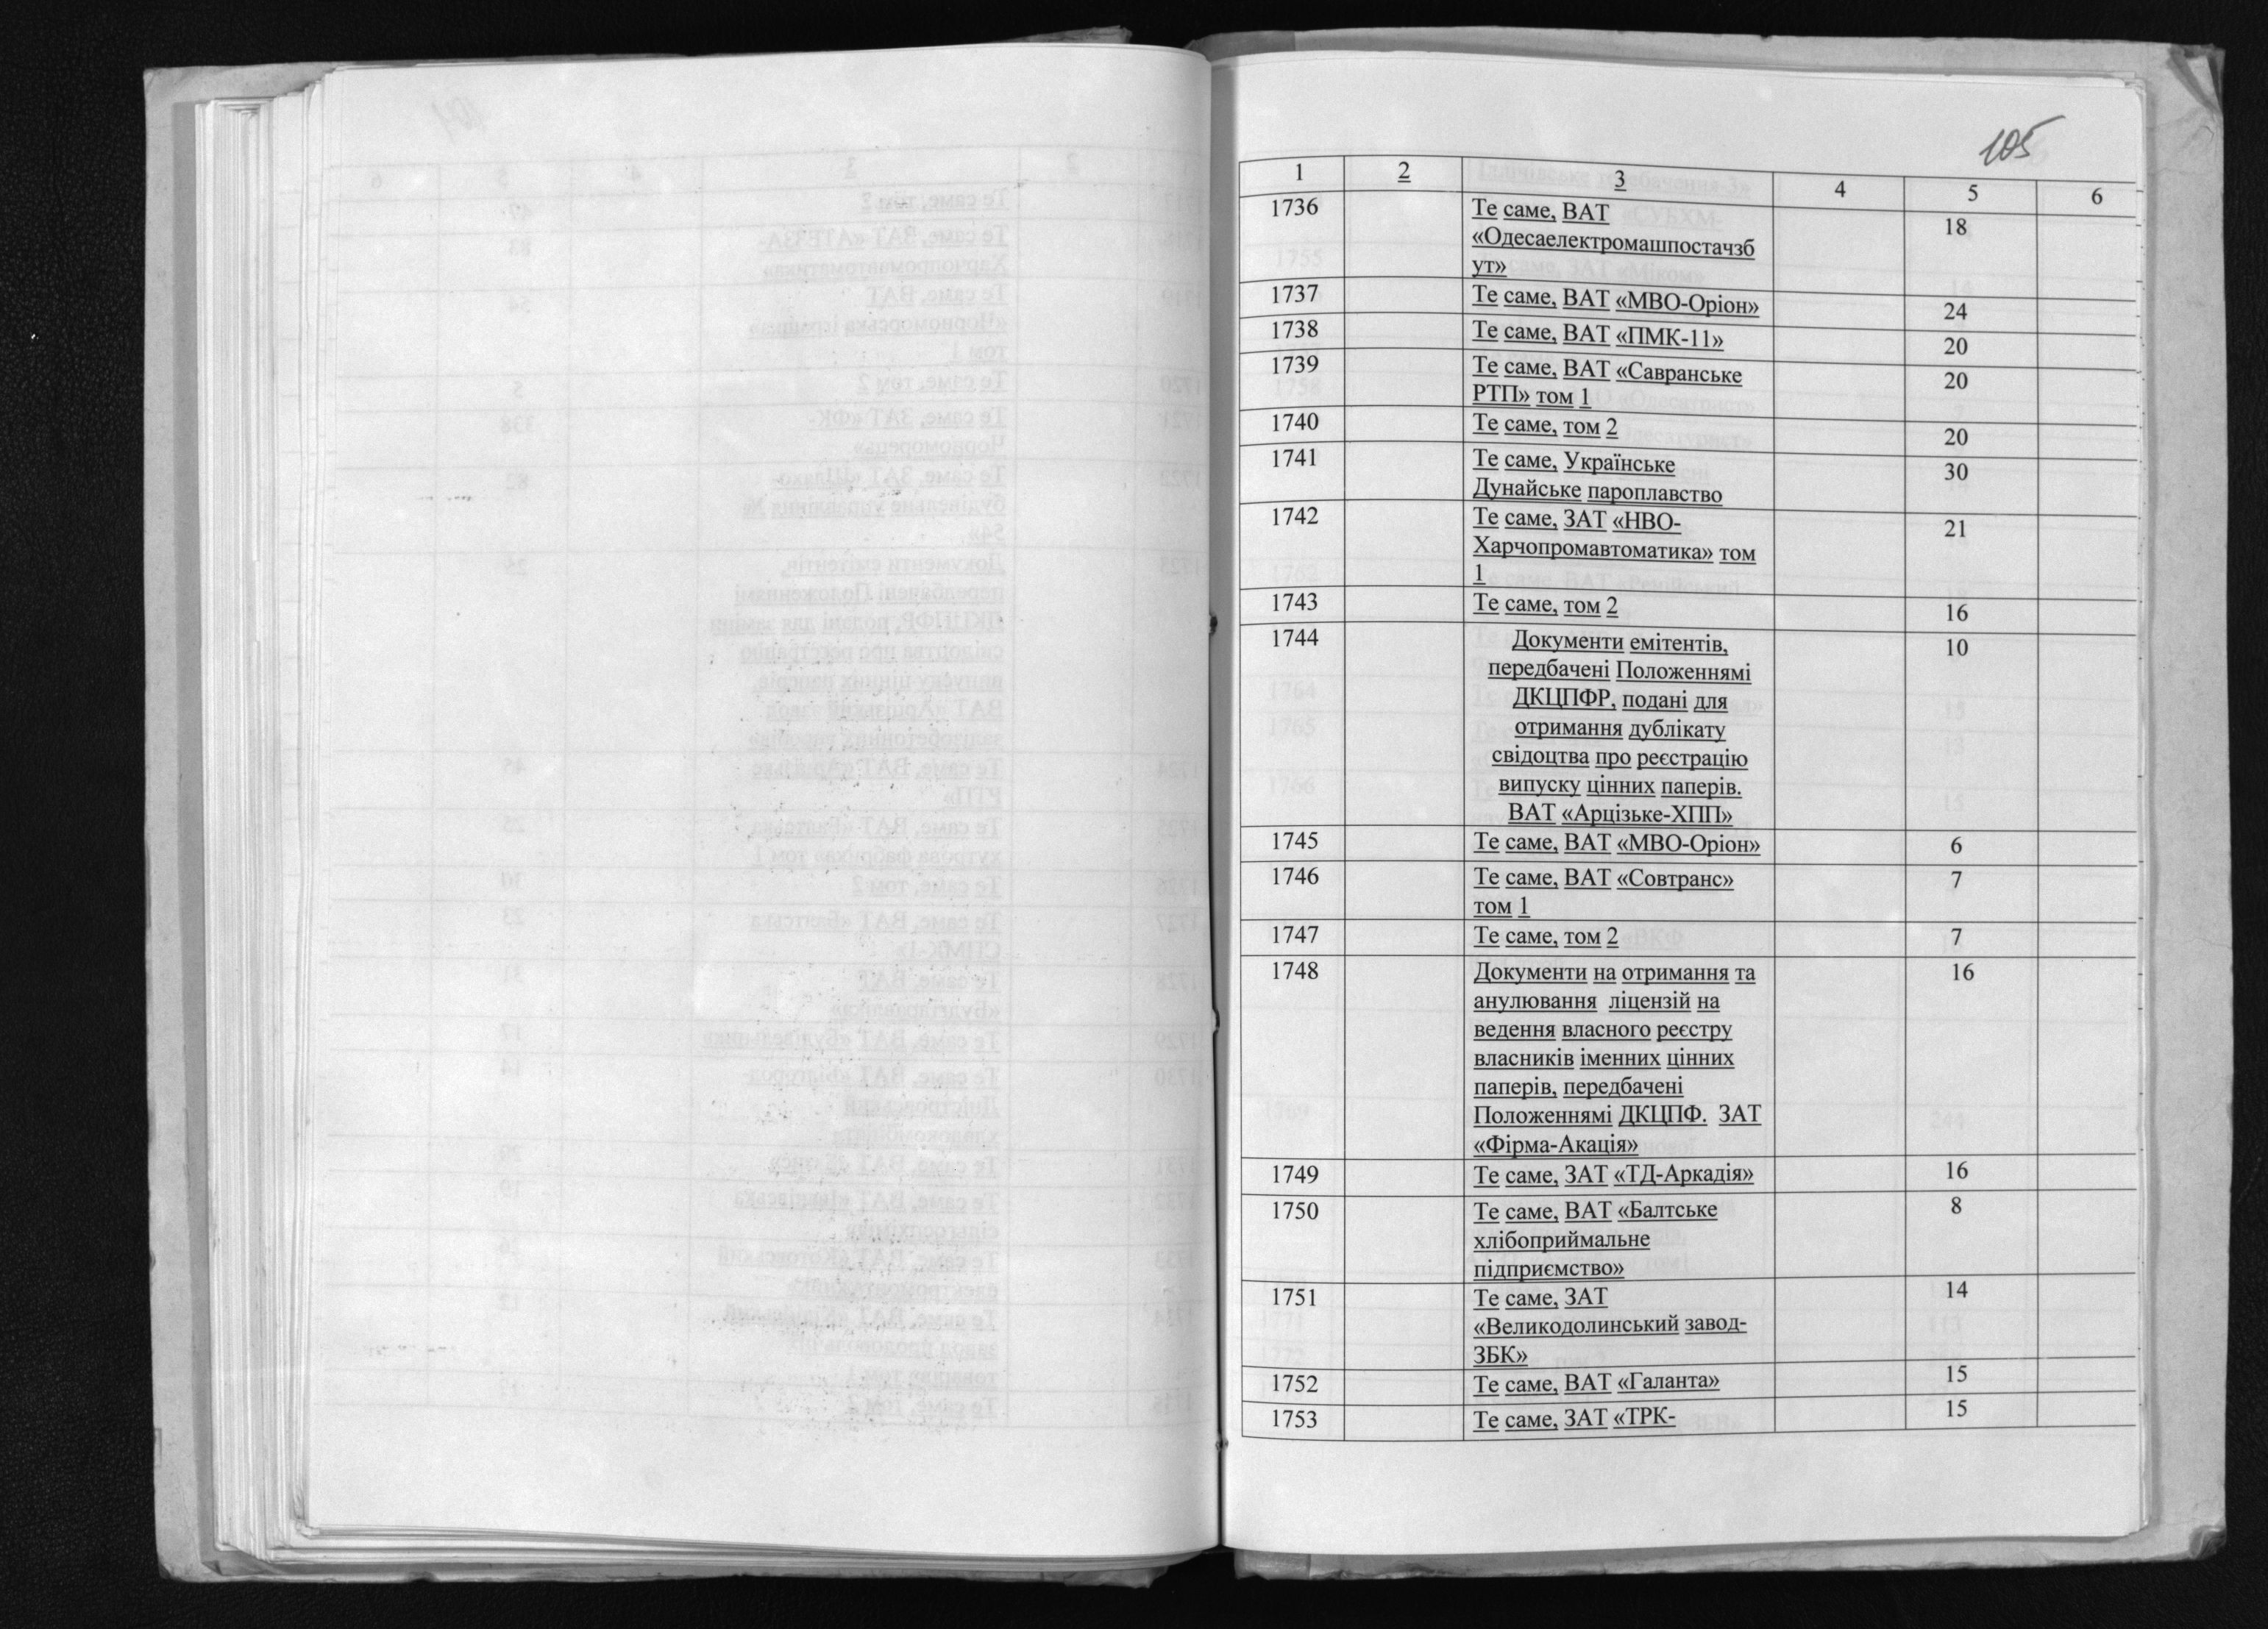 105
1 2 3 4 5 6
1736 Те саме, ВАТ 18
«Одесаелектромашпостачзб
ут»
1737 Те саме, ВАТ «МВО-Оріон» 24
1738 Те саме, ВАТ «ПМК-11» 20
1739 Те саме, ВАТ «Савранське 20
РТП» том 1
1740 Те саме, том 2 20
1741 Те саме, Українське 30
Дунайське пароплавство
1742 Те саме, ЗАТ «НВО- 21
Харчопромавтоматика» том
1
1743 Те саме, том 2 16
1744 Документи емітентів, 10
передбачені Положеннямі
ДКЦПФР, подані для
отримання дублікату
свідоцтва про реєстрацію
випуску цінних паперів.
ВАТ «Арцізьке-ХПП»
1745 Те саме, ВАТ «МВО-Оріон» 6
1746 Те саме, ВАТ «Совтранс» 7
том 1
1747 Те саме, том 2 7
1748 Документи на отримання та 16
анулювання ліцензій на
ведення власного реєстру
власників іменних цінних
паперів, передбачені
Положеннямі ДКЦПФ. ЗАТ
«Фірма-Акація»
1749 Те саме, ЗАТ «ТД-Аркадія» 16
1750 Те саме, ВАТ «Балтське 8
хлібоприймальне
підприємство»
1751 Те саме, ЗАТ 14
«Великодолинський завод-
ЗБК»
1752 Те саме, ВАТ «Галанта» 15
1753 Те саме, ЗАТ «ТРК- 15